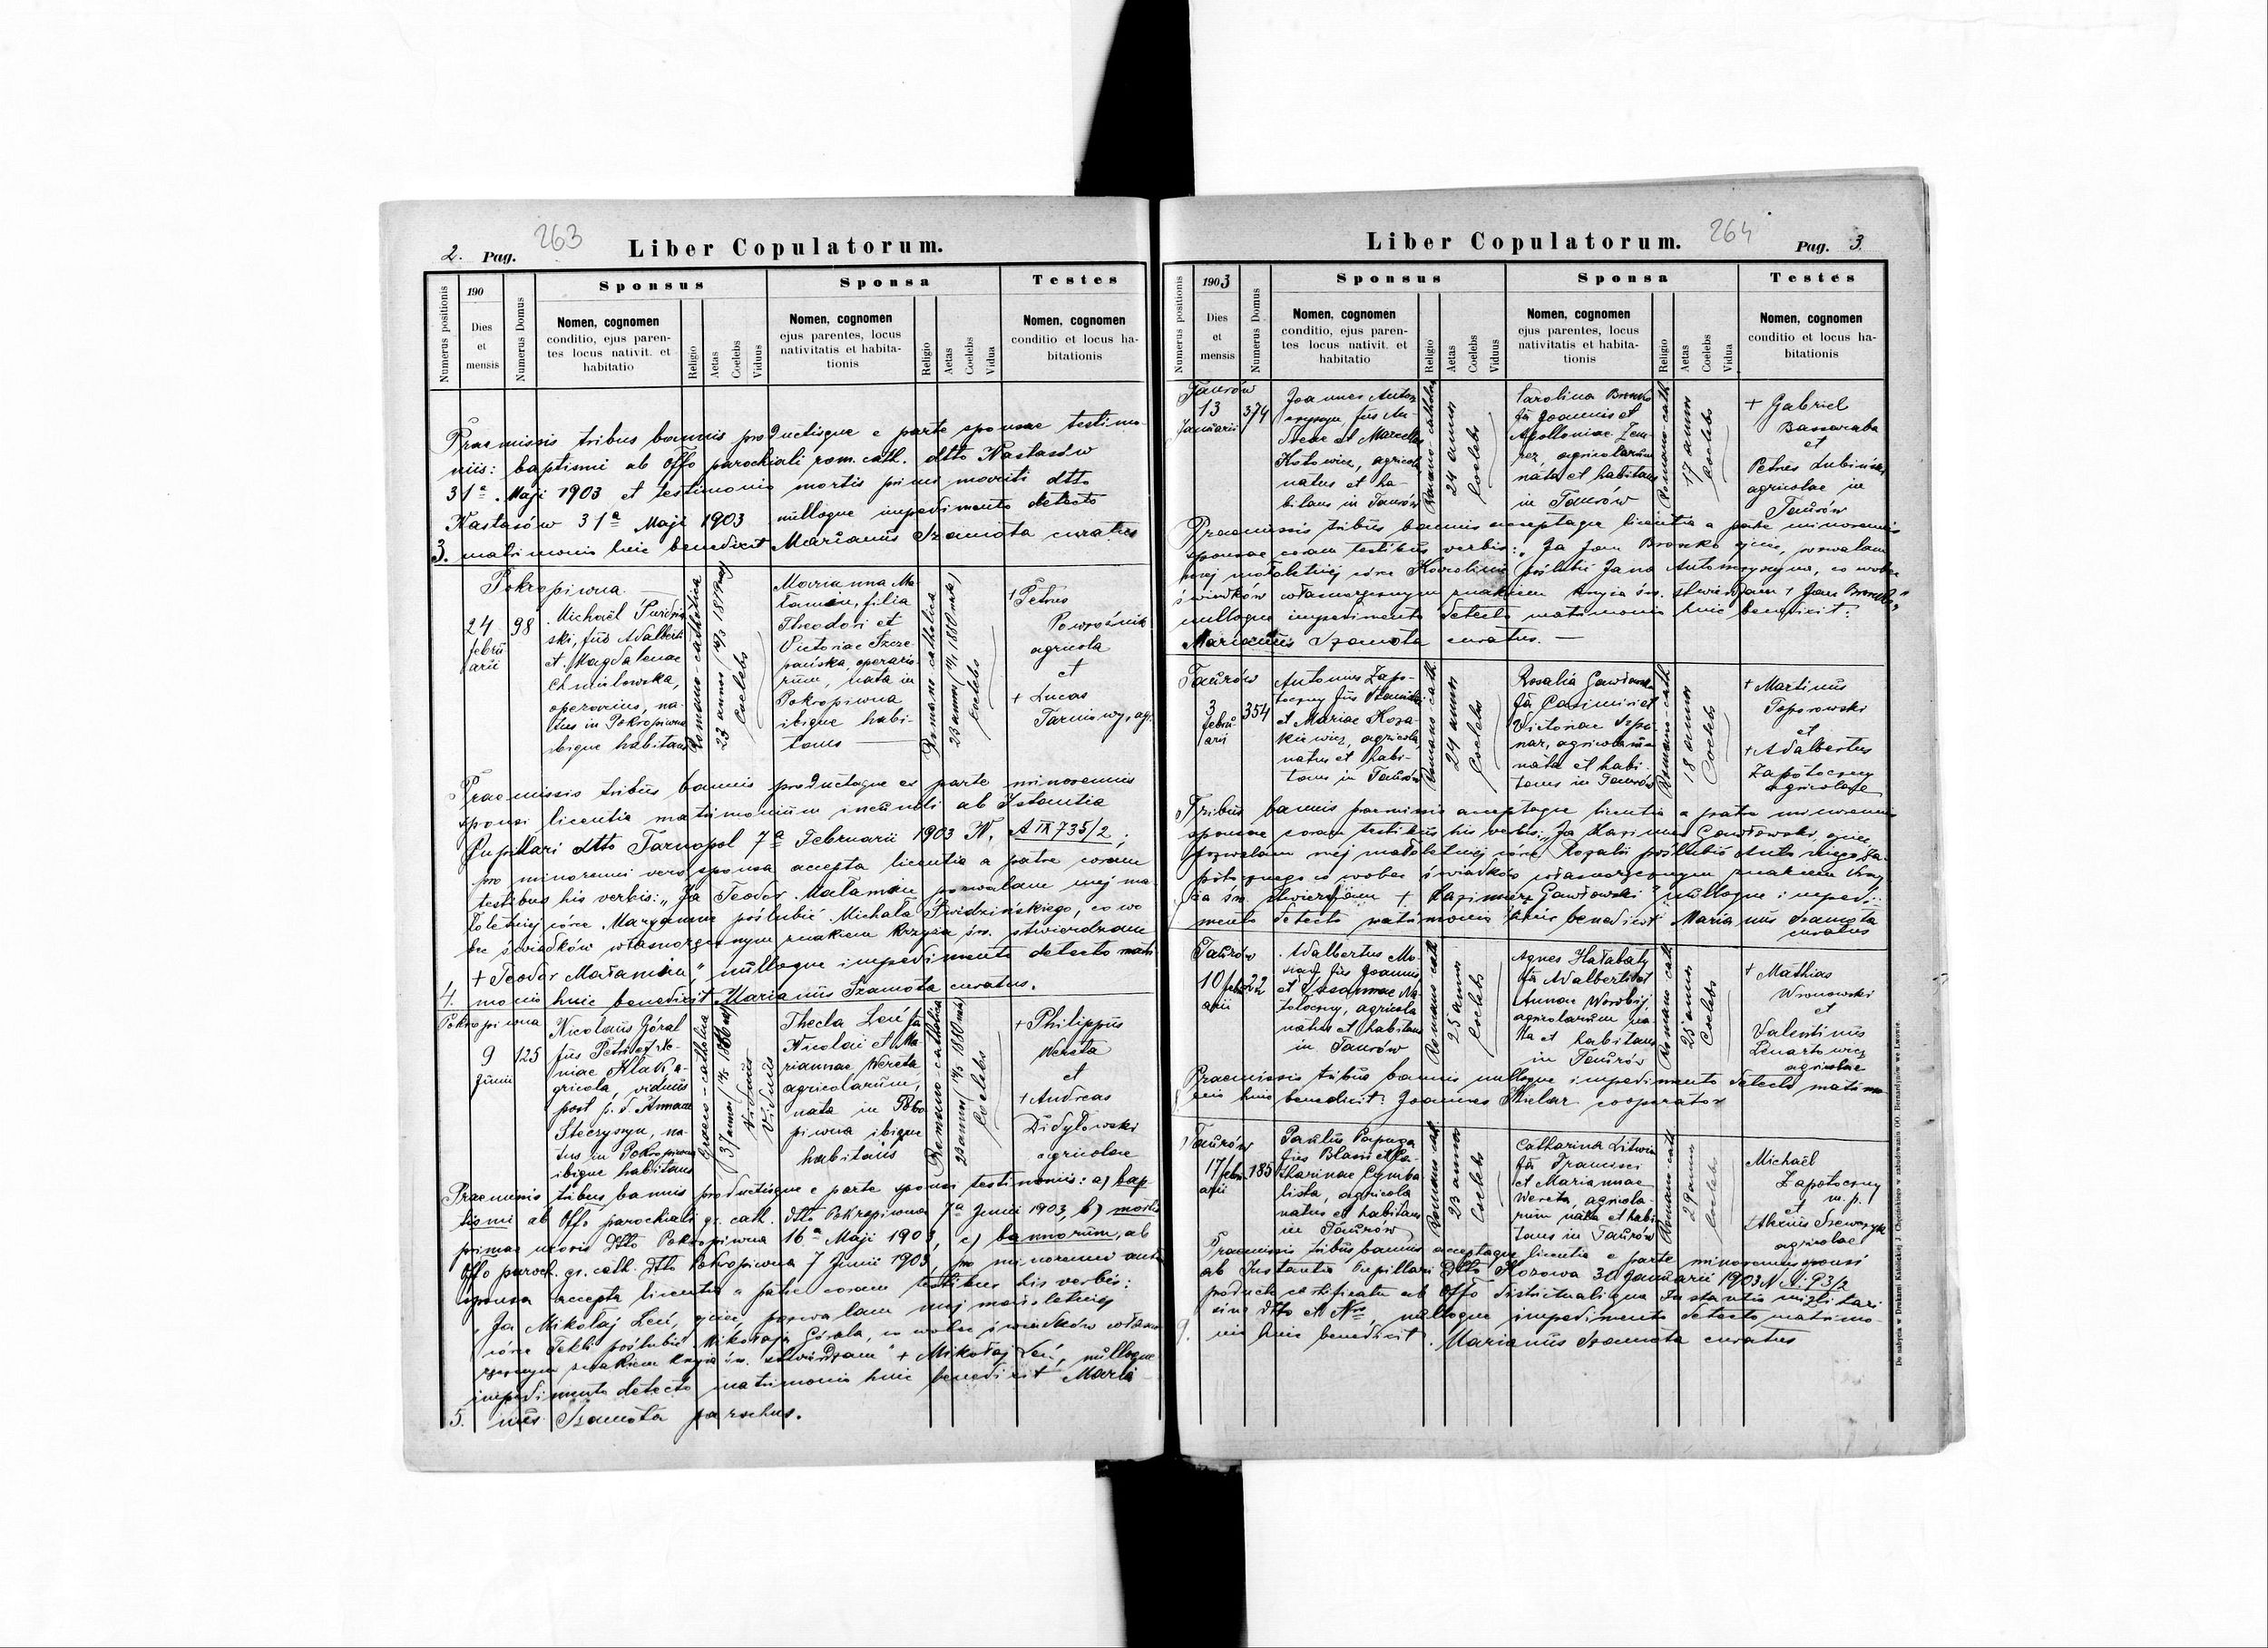 2. Pag.
263
Liber Copulatorum.
Numerus positionis
190
Dies
et
mensis
Numerus Domus
Sponsus
Nomen, cognomen
conditio, ejus paren-
tes locus nativit. et
habitatio
Religio
Aetas
Coelebs
Viduus
Sponsa
Nomen, cognomen
ejus parentes, locus
nativitatis et habita-
tionis
Religio
Aetas
Coelebs
Vidua
Testes
Nomen, cognomen
conditio et locus ha-
bitationis
Praemissis tribus bannis productisque e parte sponsae testimo-
niis: baptismi ab Offo parochiali rom. cath. dtto Nastasów
31a Maji 1903 et testimonio mortis primi dtto
Nastasów 31a Maji 1903 nulloque impedimento detecto
3. matrimonio huic benedixit Marianus Szamota curatus
Pokropiwna
24
febru
arii
98
Michaël
ski, fius Adalberti
et Magdalenae
Chmielowska,
operarius, na-
tus in Pokropiwna
ibique habitans
Romano-catholica
23 annos
Coelebs
Marianna Ma-
łamin, filia
Theodori et
Victoriae Szcze-
pańska, operario-
rum, nata in
Pokropiwna
ibique habi-
tans
Romano-catholica
23 annos
Coelebs
+ Petrus
Powroźnik
agricola
et
+ Lucas
Tarnowy, agr.
Praemissis tribus bannis productaque ex parte minorennis
sponsi licentia matrimonium ineundi ab Instantia
Pupillari dtto Tarnopol 7a Februarii 1903 N. A IX 735/2;
pro minorenni vero sponsa accepta licentia a patre coram
testibus his verbis: „Ja Teodor Małamin pozwalam mej ma-
łoletniej córce Maryannie poślubić Michała Świdzińskiego, co wo-
bec świadków własnoręcznym znakiem krzyża św. stwierdzam
+ Teodor Małamin" nulloque impedimento detecto matri
4. monio huic benedixit Marianus Szamota curatus.
Pokropiwna
9
Junii
125
Nicolaus Góral
fius Petri et Xe-
niae Hłak, a-
gricola, viduus
post p. d. Annam
Steczyszyn, na-
tus in Pokropiwna
ibique habitans
Graeco-catholica
37 annos
Viduus
Thecla Leń fa
Nicolai et Ma-
riannae Wereta
agricolarum,
nata in Pokro
piwna ibique
habitans
Romano-catholica
23 annos
Coelebs
+ Philippus
Wereta
et
+ Andreas
Didyłowski
agricolae
Praemissis tribus bannis productisque e parte sponsi testimoniis: a) bap-
tismi ab Offo parochiali gr. cath. dtto Pokropiwna 7a Junii 1903, b) mortis
primae uxoris dtto Pokropiwna 16a Maji 1903, c) bannorum, ab
Offo paroch. gr. cath. dtto Pokropiwna 7 Junii 1903, pro minorenni autem
sponsa accepta licentia a patre coram testibus his verbis:
„Ja Mikołaj Leń, ojciec, pozwalam mej małoletniej
córce Tekli poślubić Mikołaja Górala, co wobec świadków własno-
ręcznym znakiem krzyża św. stwierdzam" + Mikołaj Leń, nulloque
impedimento detecto matrimonio huic benedixit Maria-
5. nus Szamota parochus.
Liber Copulatorum.
264
Pag. 3
Numerus positionis
1903
Dies
et
mensis
Numerus Domus
Sponsus
Nomen, cognomen
conditio, ejus paren-
tes locus nativit. et
habitatio
Religio
Aetas
Coelebs
Viduus
Sponsa
Nomen, cognomen
ejus parentes, locus
nativitatis et habita-
tionis
Religio
Aetas
Coelebs
Vidua
Testes
Nomen, cognomen
conditio et locus ha-
bitationis
Taurów
13
Januarii
374
Joannes Anton
fius An-
dreae et Marcellae
Kotowicz, agricola
natus et ha-
bitans in Taurów
Romano-catholica
24 annos
Coelebs
Carolina Bronko
fa Joannis et
Apolloniae
agricolarum
nata et habitans
in Taurów
Romano-cath
17 annos
Coelebs
+ Gabriel
Bassaraba
et
Petrus Lubiński
agricolae in
Taurów
Praemissis tribus bannis acceptaque licentia a patre minorennis
sponsae coram testibus verbis: „Ja Jan Bronko ojciec, pozwalam
mej małoletniej córce Karolinie poślubić Jana co wobec
świadków własnoręcznym znakiem krzyża św. stwierdzam + Jan Bronko"
nulloque impedimento detecto matrimonio huic benedixit:
Marianus Szamota curatus.
Taurów
3
febru
arii
354
Antonius Zapo-
toczny fius Stanislai
et Mariae Koza-
kiewicz, agricola,
natus et habi-
tans in Taurów
Romano-cath
24 annos
Coelebs
Rosalia Gawłowska
fa Casimiri et
Victoriae Szpo-
nar, agricolarum
nata et habi-
tans in Taurów
Romano-cath
18 annos
Coelebs
+ Martinus
Toporowski
et
+ Adalbertus
Zapotoczny
agricolae
Tribus bannis praemissis acceptaque licentia a patre minorennis
sponsae coram testibus his verbis: „Ja Kazimierz Gawłowski, ojciec
pozwalam mej małoletniej córce Rozalii poślubić Antoniego Za-
potocznego co wobec świadków własnoręcznym znakiem krzy-
ża św. stwierdzam + Kazimierz Gawłowski" nulloque impedi-
mento detecto matrimonio huic benedixit Marianus Szamota
curatus
Taurów
10 febru
arii
22
Adalbertus Mo-
fius Joannis
et Susannae Za-
potoczny, agricola
natus et habitans
in Taurów
Romano cath
25 annos
Coelebs
Agnes Hałabały
fa Adalberti et
Annae Worobij
agricolarum na-
ta et habitans
in Taurów
Romano cath
25 annos
Coelebs
+ Mathias
Wronowski
et
Valentinus
Linartowicz
agricolae
Praemissis tribus bannis nulloque impedimento detecto matrimo
nio huic benedixit: Joannes Mielar cooperator
Taurów
17 febru
arii
185
Paulus Papuga
fius Blasii et Ca-
tharinae Cymba
lista, agricola
natus et habitans
in Taurów
Romano cath
23 annos
Coelebs
Catharina Litwin
fa Francisci
et Mariannae
Wereta agricola-
rum nata et habi
tans in Taurów
Romano-cath
29 annos
Coelebs
Michaël
Zapotoczny
m. p.
et
+ Alexius Szewczyk
agricolae
Praemissis tribus bannis acceptaque licentia e parte minorennis sponsi
ab Instantia Pupillari dtto Kozowa 30 Januarii 1903 N.
producto certificatu ab Offo districtuali qua Instantia militari
sine dtto et Nro nulloque impedimento detecto matrimo-
nio huic benedixit. Marianus Szamota curatus
Do nabycia w Drukarni Katolickiej J. Chęcińskiego w zabudowaniu OO. Bernardynów we Lwowie.